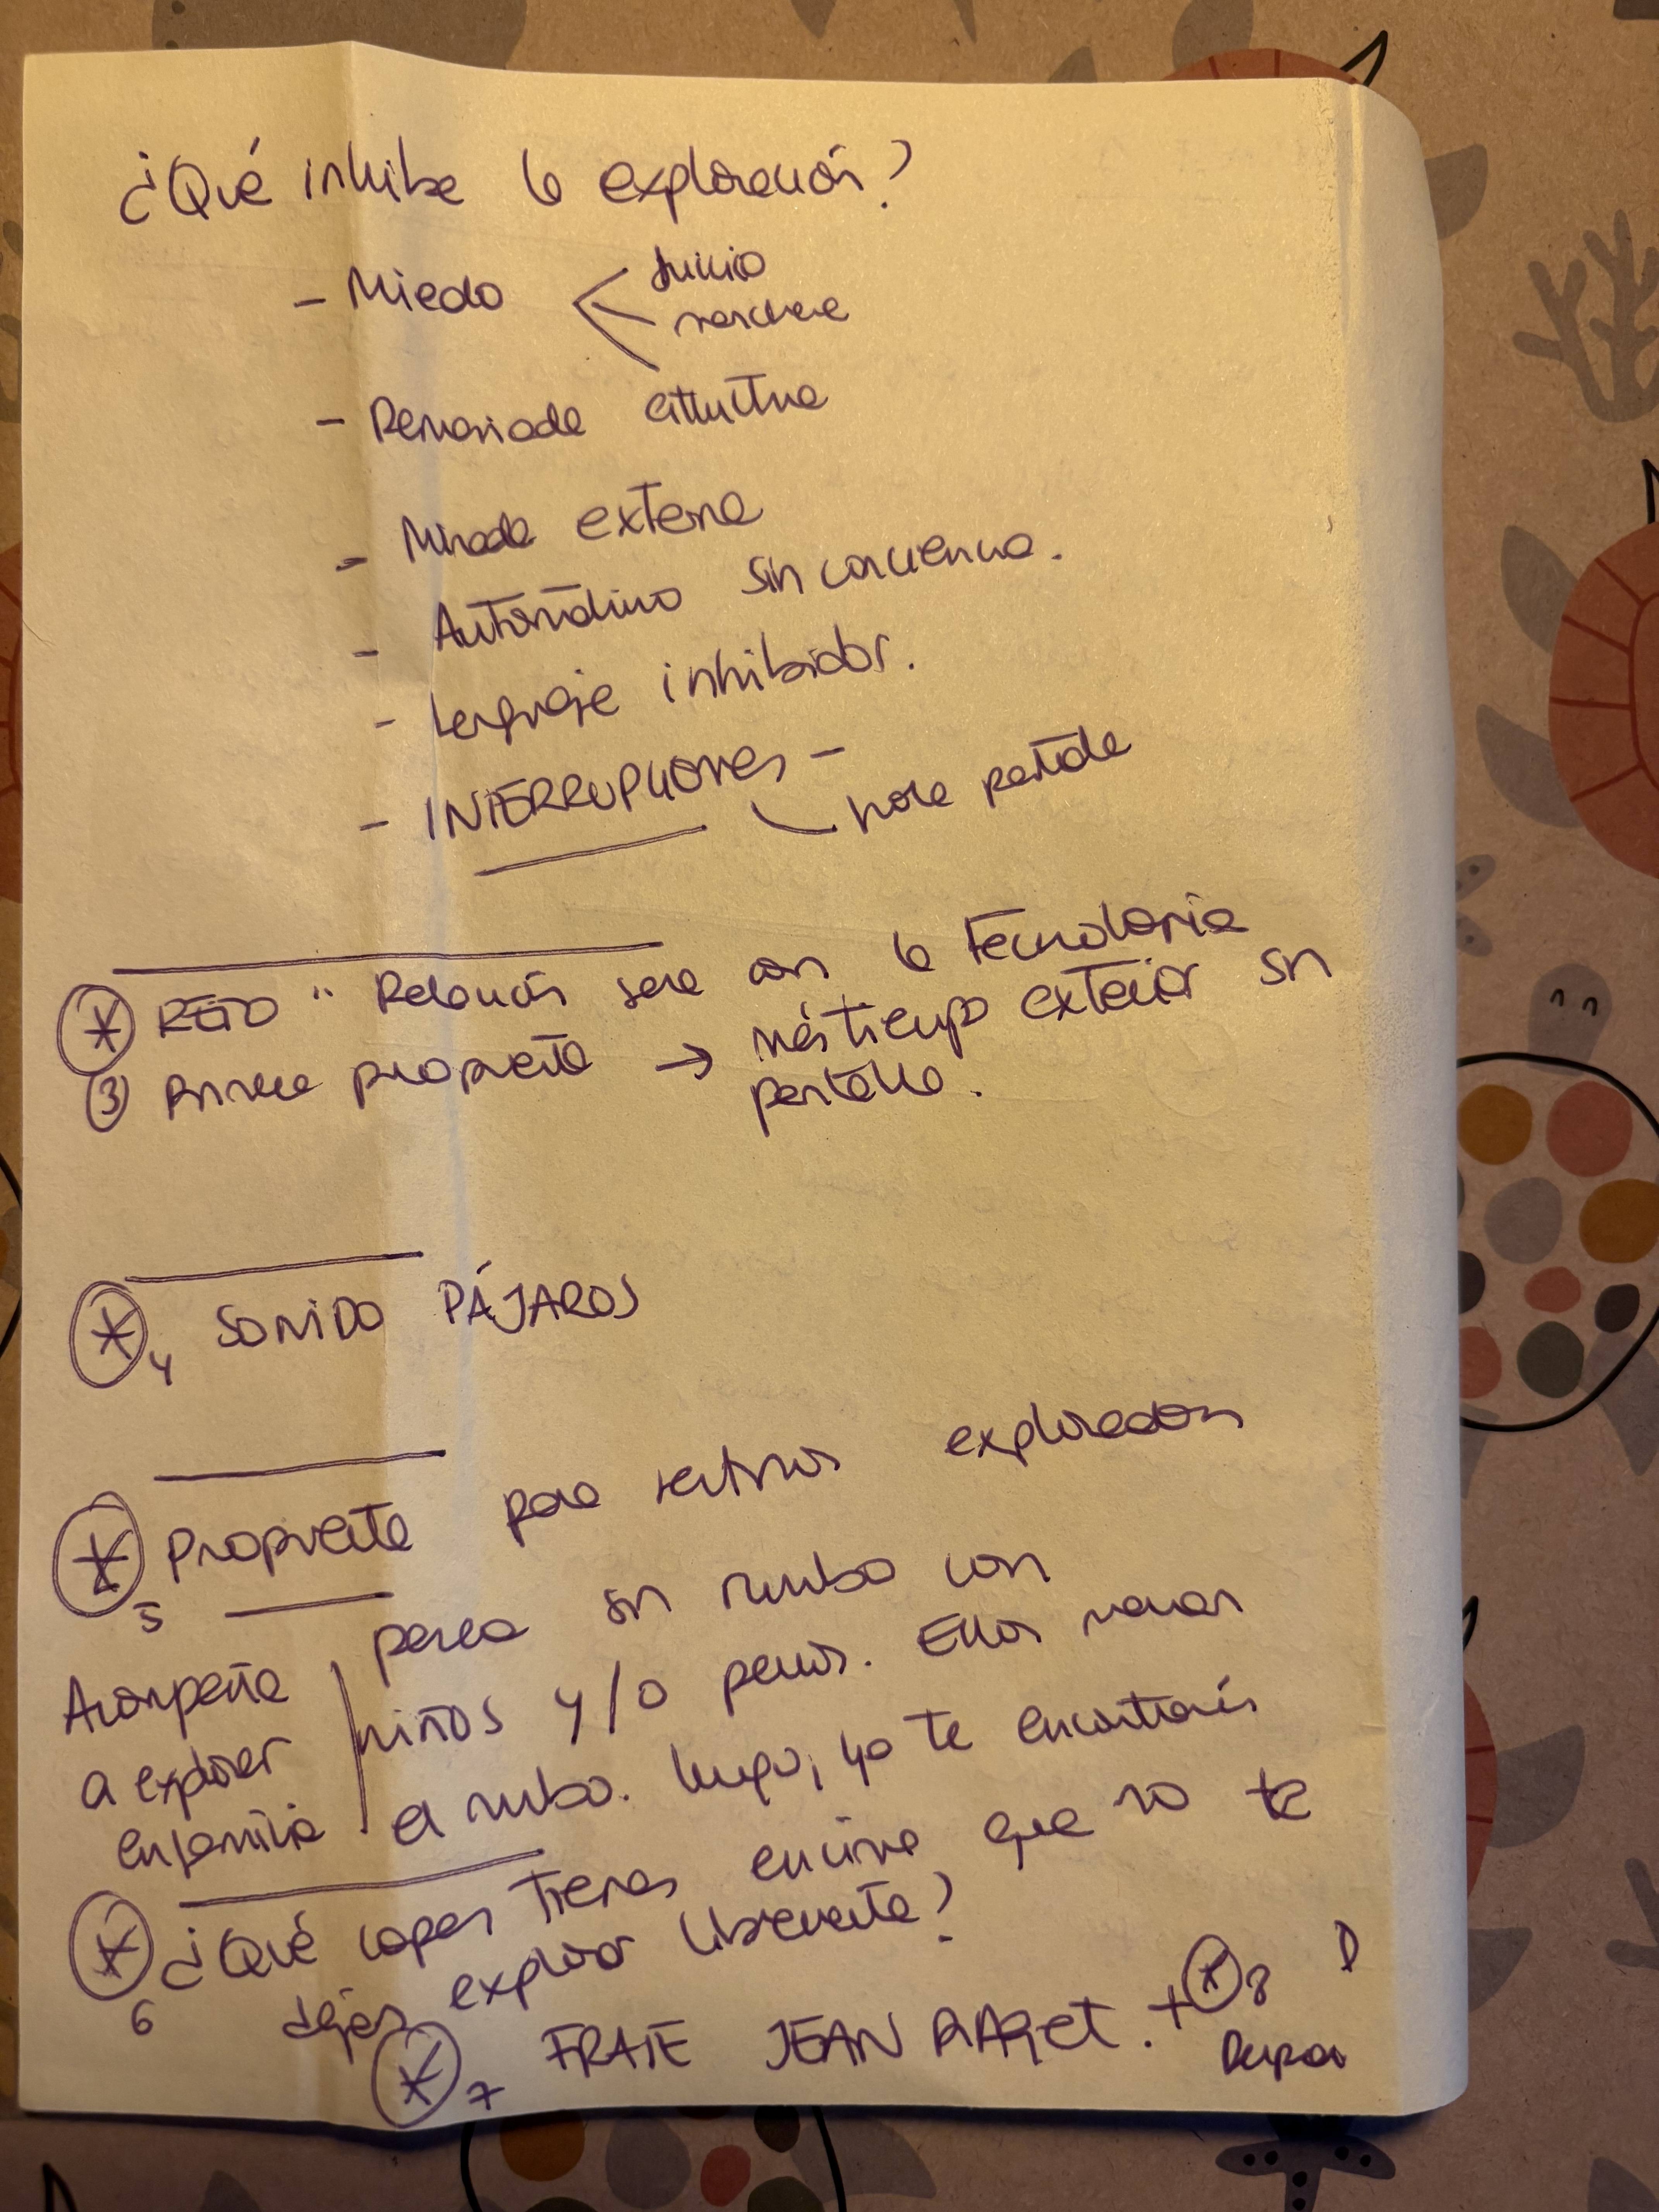 ¿Qué inhibe la exploración?
- Miedo < Juicio
- Demasiada estructura
- Mirada externa
- Automático sin conciencia.
- Lenguaje inhibidor.
- INTERRUPCIONES -
hora partida
* RETO " Relación sana con la tecnología
③ Primera propuesta → más tiempo exterior sin
pantalla.
*4 SONIDO PÁJAROS
*5 Propuesta para sentirnos exploradores
Acompaña
a explorar
en familia
paseo sin rumbo con
niños y/o perros. Ellos marcan
el rumbo. Luego, ya te encontrarás
*6 ¿Qué capas tienes encima que no te
dejas explorar libremente?
*7 FRASE JEAN PIAGET. + *8